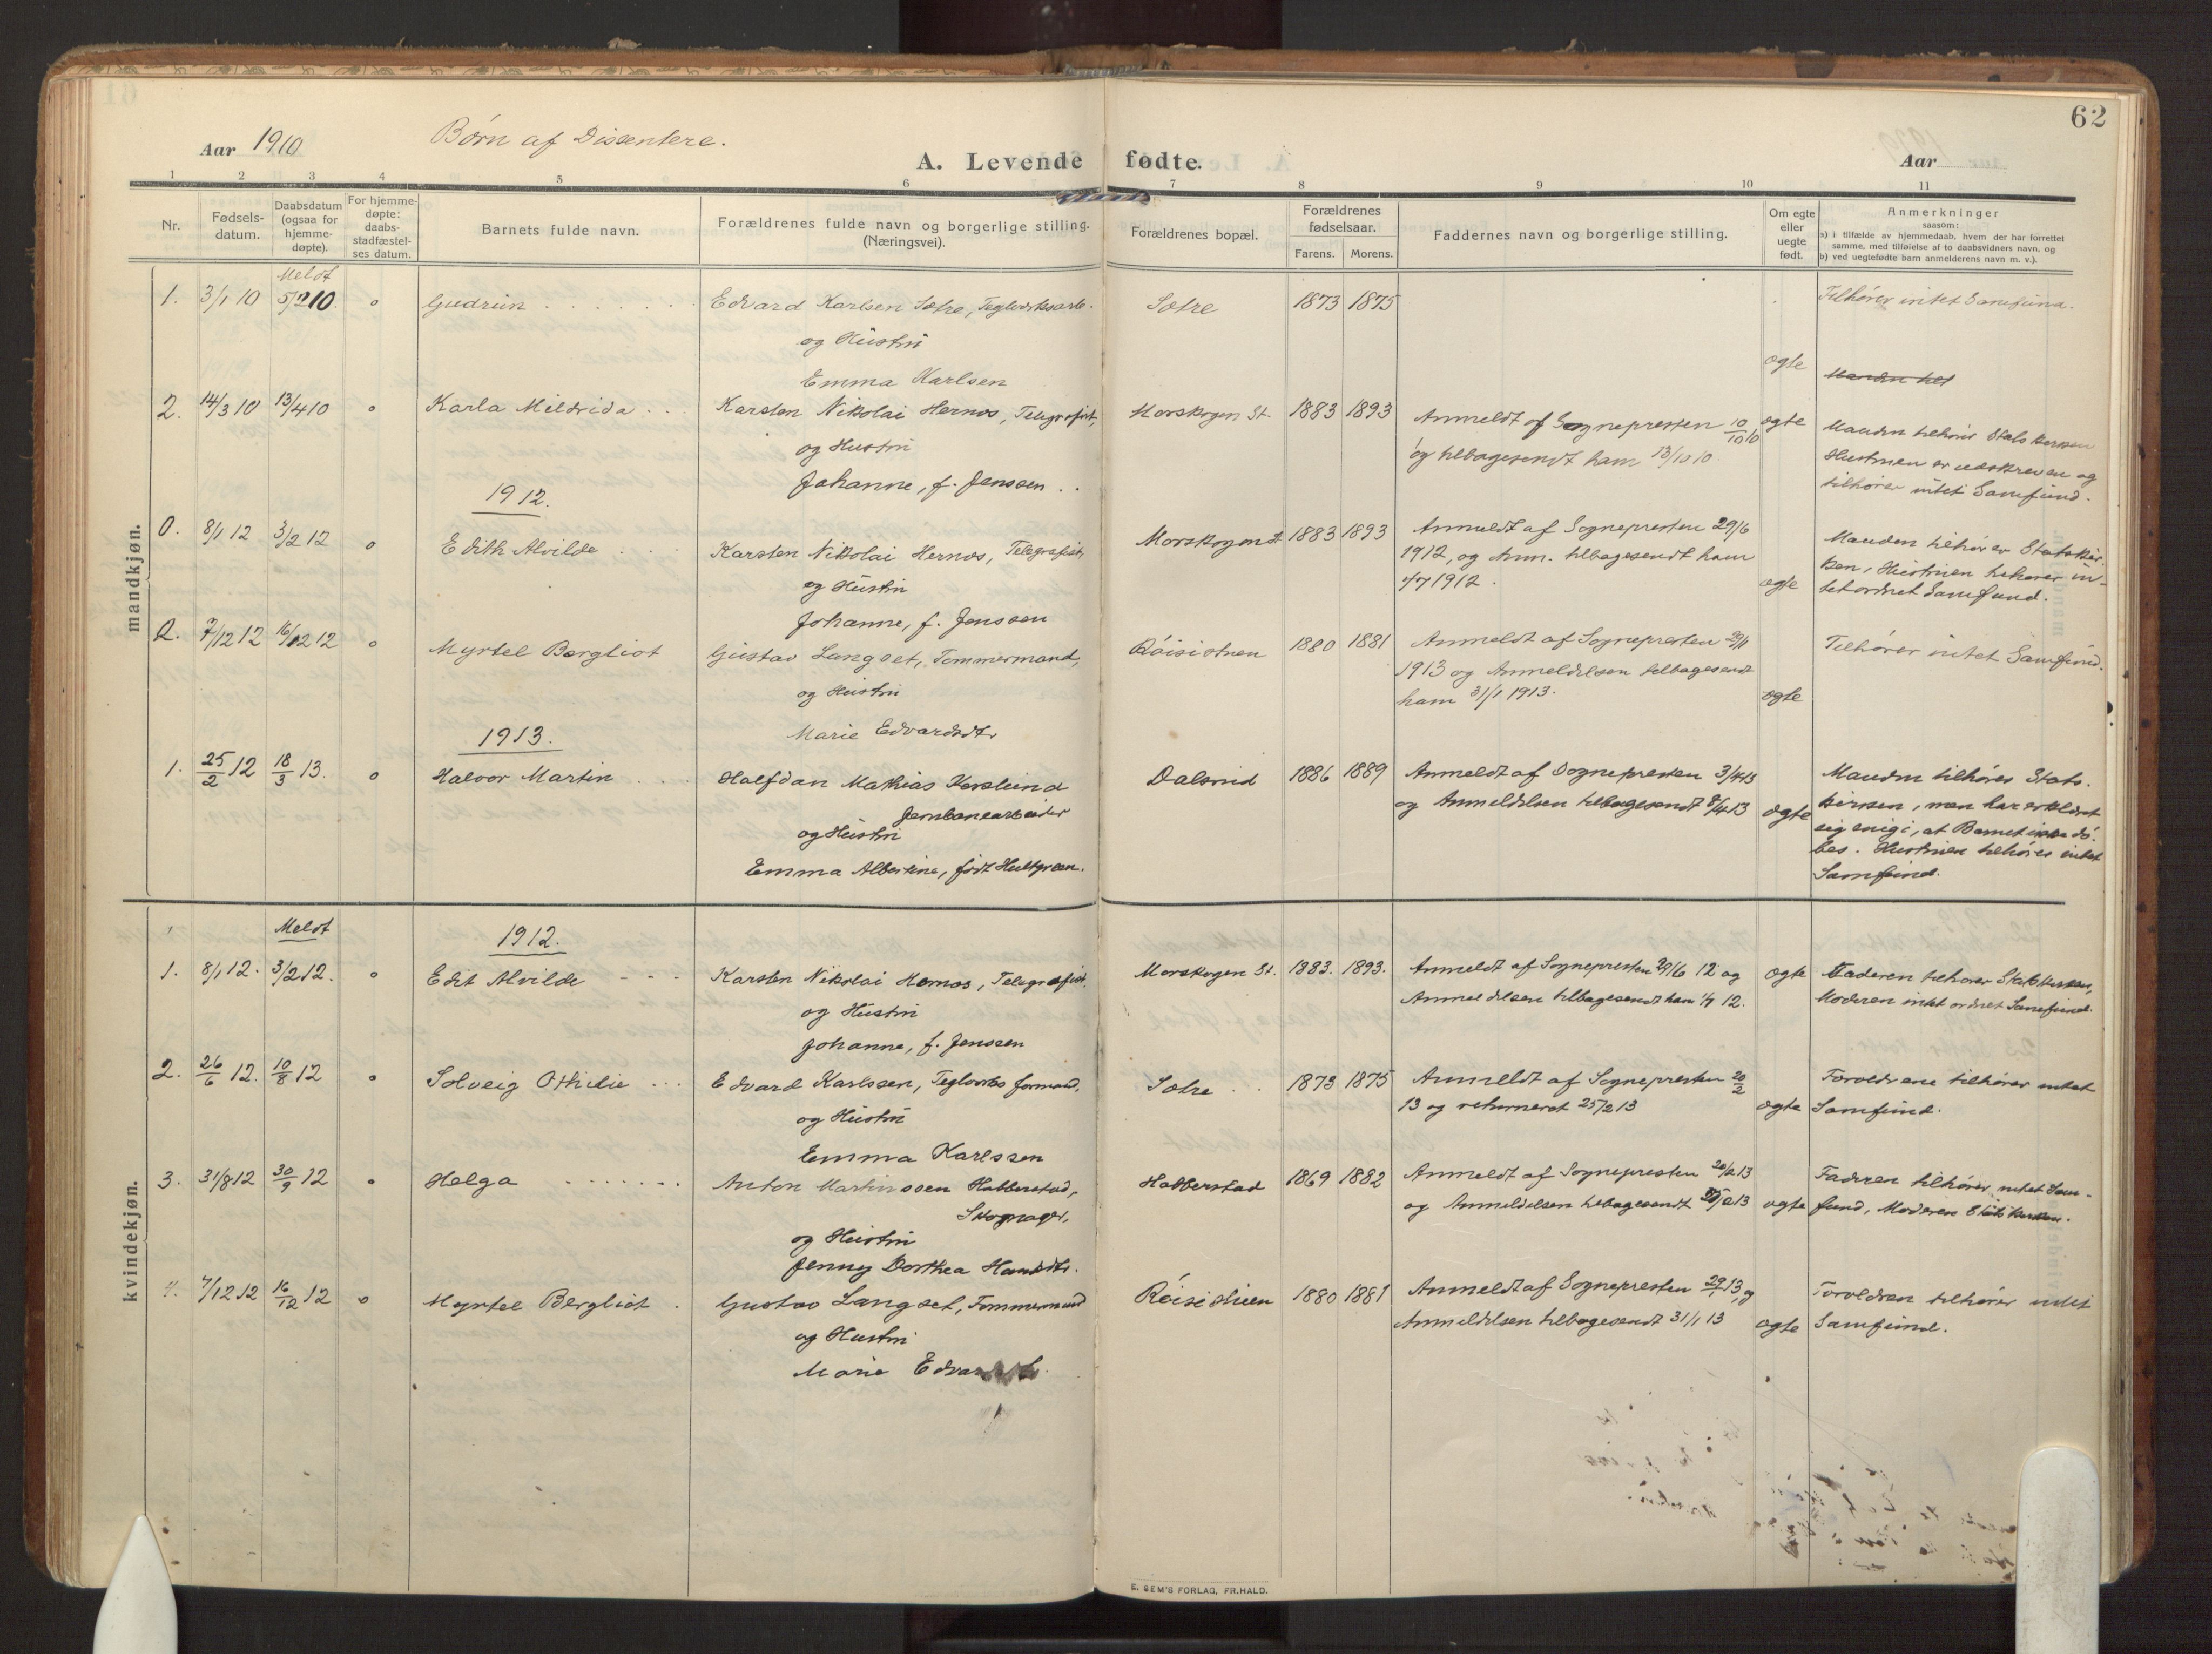 62
Aar 1910 Børn af Dissentere. A. Levende fødte. Aar
1 2 3 4 5 6 7 8 9 10 11
Nr.
Fødsels-
datum.
Daabsdatum
(ogsaa for
hjemme-
døpte).
For hjemme-
døpte:
daabs-
stadfæstel-
ses datum.
Barnets fulde navn.
Forældrenes fulde navn og borgerlige stilling.
(Næringsvei).
Forældrenes bopæl.
Forældrenes
fødselsaar.
Farens. Morens.
Faddernes navn og borgerlige stilling.
Om egte
eller
uegte
født.
Anmerkninger
saasom:
a) i tilfælde av hjemmedaab, hvem der har forrettet
samme, med tilføielse af to daabsvidners navn, og
b) ved uegtefødte barn anmelderens navn m. v.).
mandkjøn.
Meldt
1. 3/1 10 5/2 10. o Gudrun Edvard Karlsen Sætre, Teglverksarb. Sætre 1873 1875 Tilhører intet Samfund.
og Hustru
Emma Karlsen ægte
2. 14/3 10 13/4 10 o Karla Mildrida Karsten Nikolai Hernæs, Telegrafist, Morskogen St. 1883 1893 Anmeldt af Sognepresten 10/10 10 ægte Manden tilhører Statskirken
og Hustru og tilbagesendt ham 13/10 10. Hustruen er udskreven og
Johanne, f. Jenssen tilhører intet Samfund.
1912.
0. 8/1 12 3/2 12 o Edith Alvilde Karsten Nikolai Hernæs, Telegrafist, Morskogen St. 1883 1893 Anmeldt af Sognepresten 29/6 Manden tilhører Statskir-
og Hustru 1912, og Anm. tilbagesendt ham ken, Hustruen tilhører in-
Johanne, f. Jenssen 1/7 1912. ægte tet ordnet Samfund.
2. 7/12 12 16/12 12 o Myrtel Bergliot Gustav Langset, Tømmermand, Røisistuen 1880 1881 Anmeldt af Sognepresten 29/1 Tilhører intet Samfund.
og Hustru 1913 og Anmeldelsen tilbagesendt
Marie Edvardsdtr ham 31/1 1913. ægte
1913.
1. 25/2 12 18/3 13. o Halvor Martin Halfdan Mathias Korslund Dalsrud 1886 1889 Anmeldt af Sognepresten 3/4 13 Manden tilhører Stats-
Jernbanearbeider og Anmeldelsen tilbagesendt 8/4 13 ægte kirken, men har erklæret
og Hustru sig enig i, at Barnet ikke dø-
Emma Albertine, født Hultgreen. bes. Hustruen tilhører intet
Samfund.
kvindekjøn.
Meldt
1912.
1. 8/1 12. 3/2 12. o Edit Alvilde Karsten Nikolai Hernæs, Telegrafist, Morskogen St. 1883. 1893. Anmeldt af Sognepresten 29/6 12 og ægte Faderen tilhører Statskirken,
og Hustru Anmeldelsen tilbagesendt ham 1/7 12. Moderen intet ordnet Samfund.
Johanne, f. Jenssen
2. 26/6 12. 10/8 12 o Solveig Othilie Edvard Karlssen, Teglverksformand, Sætre 1873 1875 Anmeldt af Sognepresten 20/2 Forældrene tilhører intet
og Hustru 13 og returneret 25/2 13 ægte Samfund.
Emma Karlssen
3. 31/8 12 30/9 12 o Helga Anton Martinssen Habberstad, Habberstad 1869 1882 Anmeldt af Sognepresten 20/2 13 Faderen tilhører intet Sam-
og Anmeldelsen tilbagesendt 25/2 13 ægte fund, Moderen Statskirken.
og Hustru
Jenny Dorthea Hansdtr.
4. 7/12 12 16/12 12 o Myrtel Bergliot Gustav Langset, Tømmermand Røisistuen 1880 1881 Anmeldt af Sognepresten 29/1 13, og Forældren tilhører intet
og Hustru Anmeldelsen tilbagesendt 31/1 13 ægte Samfund.
Marie
E. SEM'S FORLAG, FR.HALD.